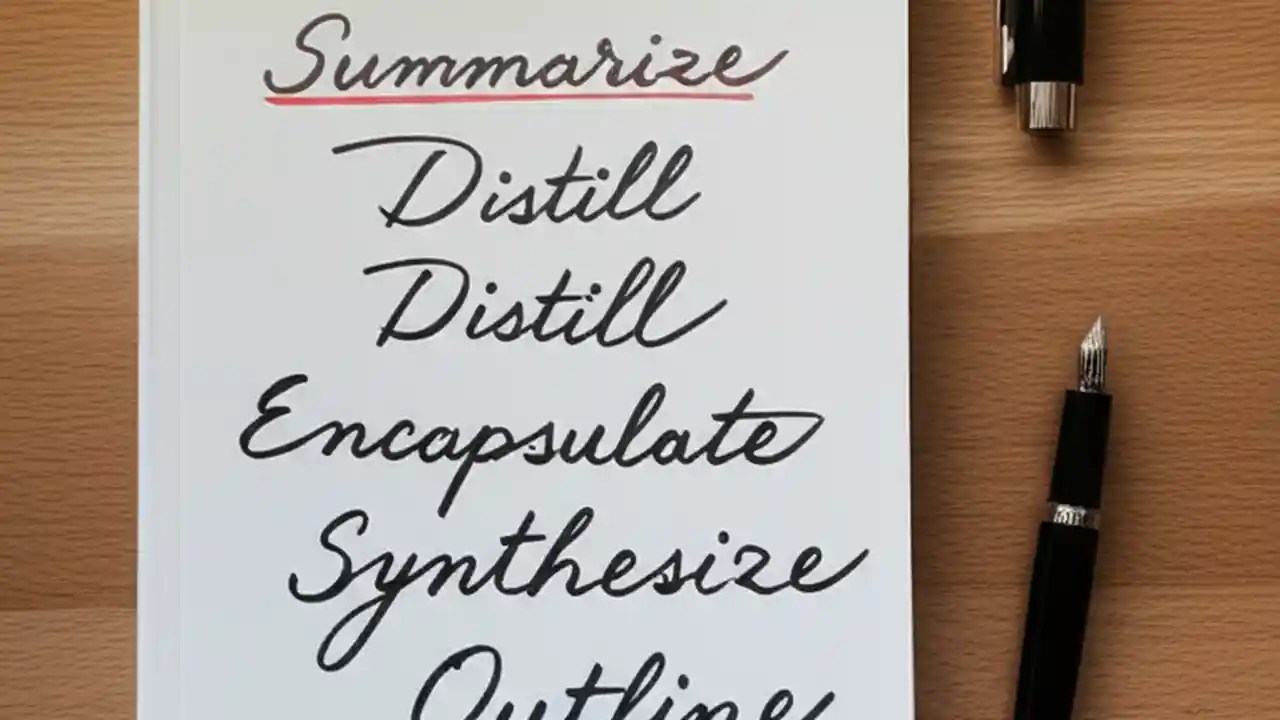 Summarize
Distill
Distill
Encapsulate
Synthesize
Outline